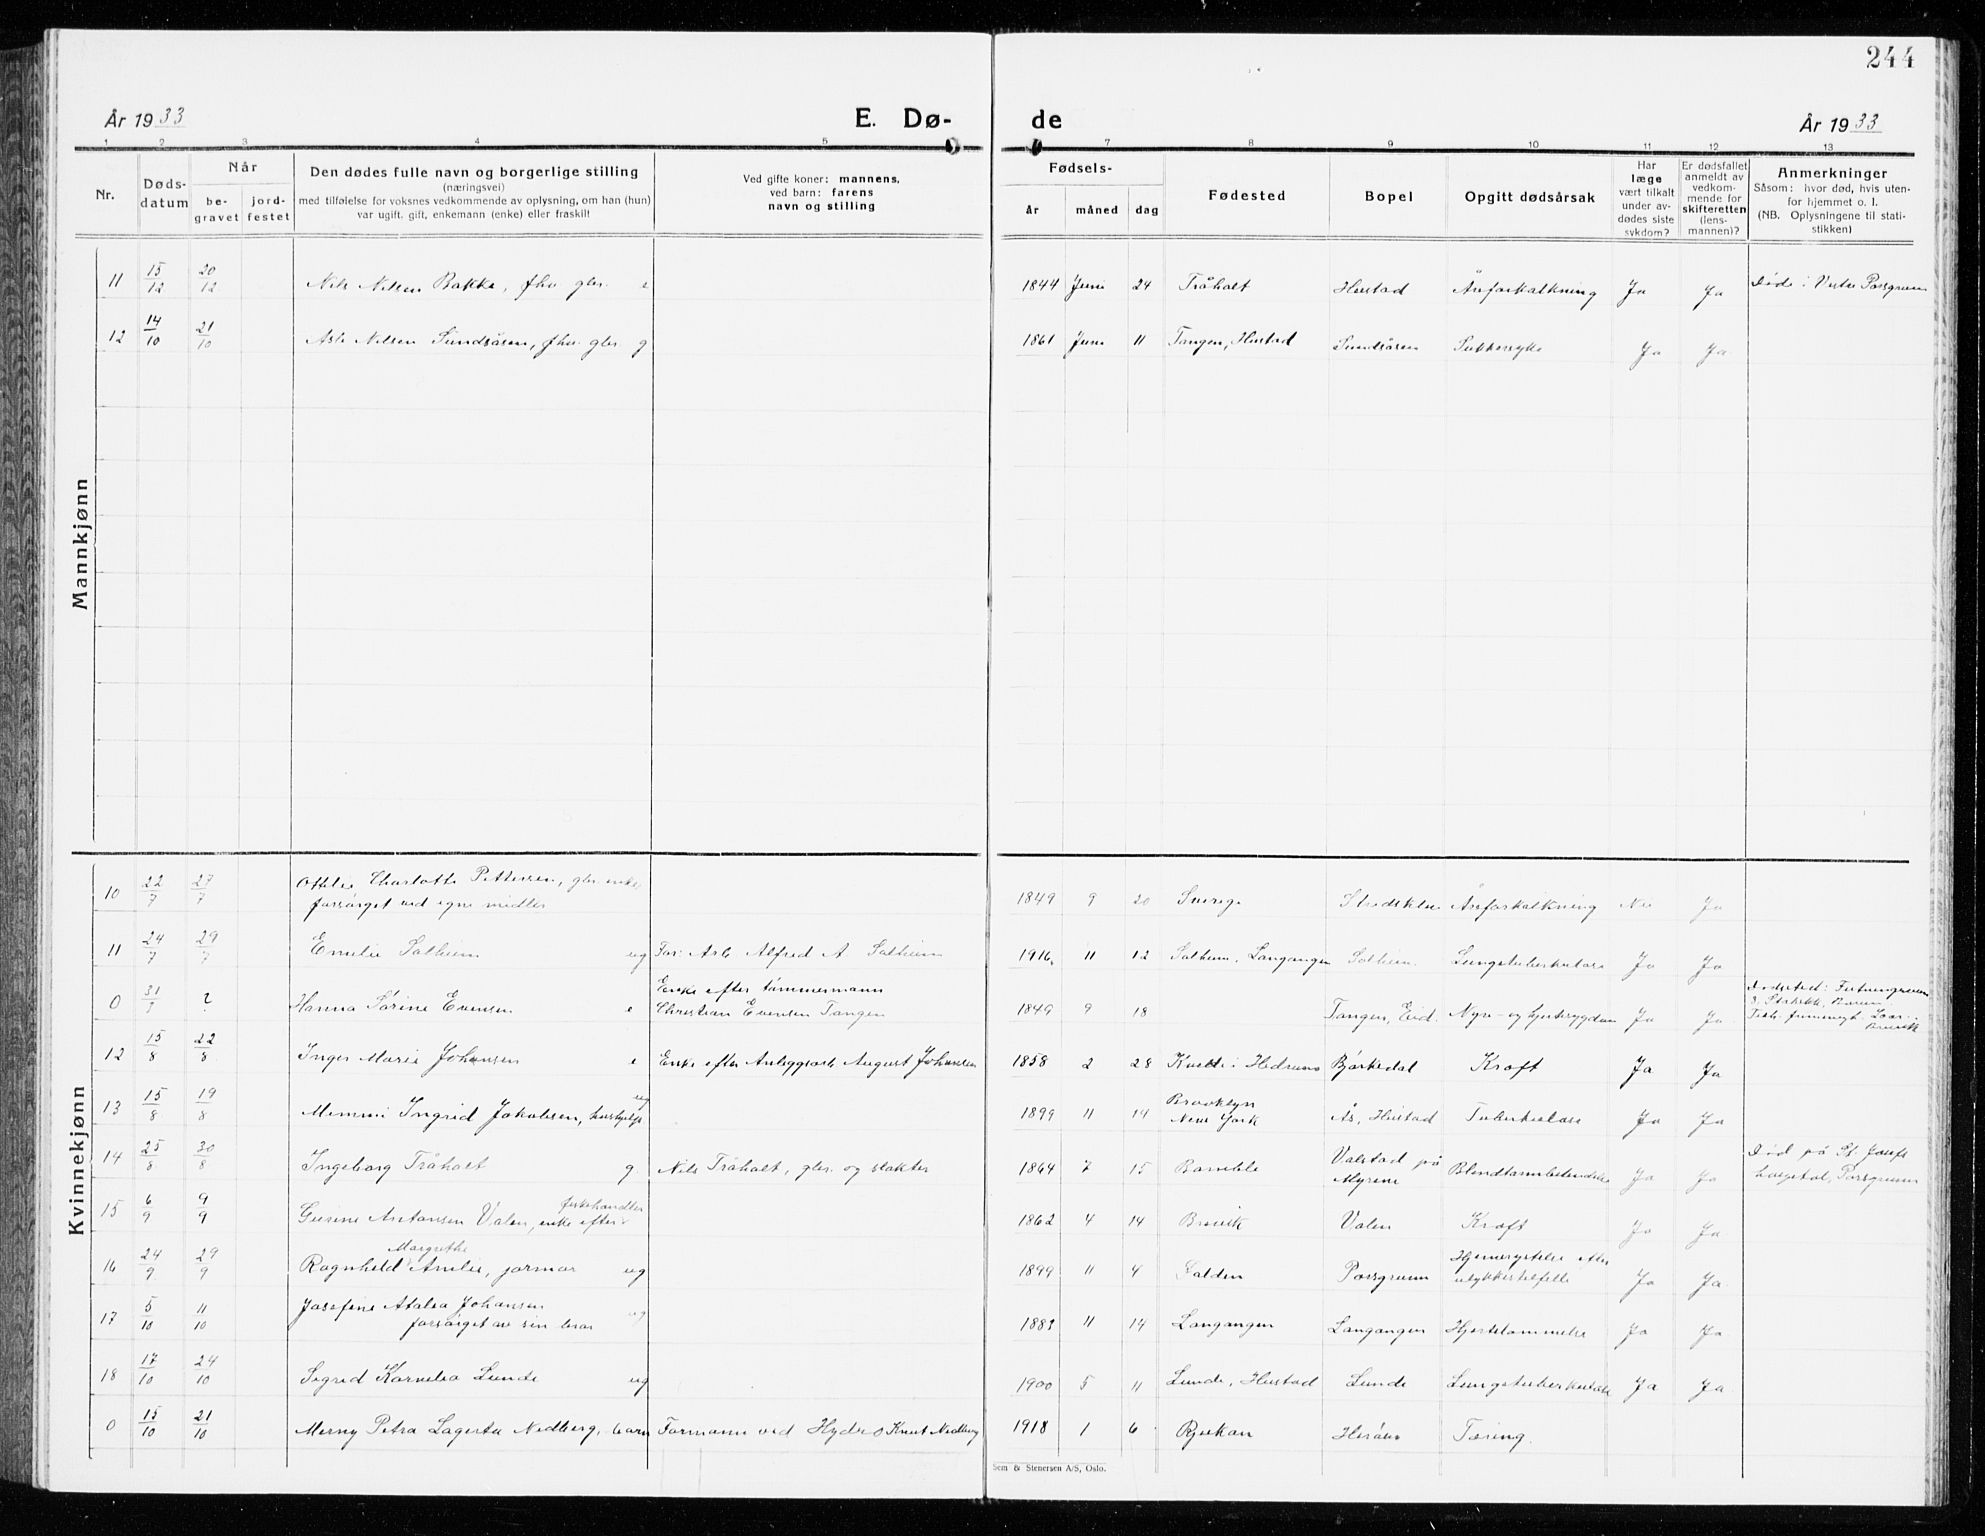 244
År 1933
E. Dø-
de
År 1933
1 2 3 4 5
7 8 9 10 11 12 13
Nr.
Døds-
datum
Når
be-
gravet
jord-
festet
Den dødes fulle navn og borgerlige stilling
(næringsvei)
med tilføielse for voksnes vedkommende av oplysning, om han (hun)
var ugift, gift, enkemann (enke) eller fraskilt
Ved gifte koner: mannens,
ved barn: farens
navn og stilling
Fødsels-
år
måned
dag
Fødested
Bopel
Opgitt dødsårsak
Har
læge
vært tilkalt
under av-
dødes siste
sykdom?
Er dødsfallet
anmeldt av
vedkom-
mende for
skifteretten
(lens-
mannen)?
Anmerkninger
Såsom: hvor død, hvis uten-
for hjemmet o. l.
(NB. Oplysningene til stati-
stikken)
Mannkjønn
11 15/12 20/12 Nils Nilsen Bakke, fhv. gbr. e 1844 Juni 24 Tråholt Heistad Åreforkalkning Ja Ja Døde i Vestre Porsgrunn
12 14/10 21/10 Nilsen Sundsåsen, fhv. gbr. g 1861 Juni 11 Tangen, Heistad Sundsåsen Sukkersyke Ja Ja
Kvinnekjønn
10 22/7 27/7 Ottilie Charlotte Pettersen, gbr. enke
forsørget ved egne midler 1849 9 20 Sverige Åreforkalkning Nei Ja
11 24/7 29/7 Emilie Solheim ug Far: Arb. Alfred A. Solheim 1916 11 12 Solheim, Langangen Solheim Lungetuberkulose Ja Ja
0 31/7 ? Hanna Sørine Evensen e Enke efter tømmermann
Christian Evensen Tangen 1849 9 18 Tangen, Eid. Nyre- og hjertesygdom Ja Ja Dødsted:
12 15/8 22/8 Inger Marie Johansen e Enke efter Anleggsarb. August Johansen 1858 2 28 Kvelde i Hedrum Bjørkedal Kreft Ja Ja
13 15/8 19/8 Mimmi Ingrid Jakobsen, hushjelp ug 1899 11 14 Brooklyn
New York Ås, Heistad Tuberkulose Ja Ja
14 25/8 30/8 Ingeborg Tråholt g. Nils Tråholt, gbr. og slakter 1864 7 15 Bamble Valstad på
Myrene Blindtarmbetendelse Ja Ja Død på St. Josefs
hospital, Porsgrunn
15 6/9 9/9 Gurine Antonsen Valen, enke efter fiskehandler 1862 4 14 Brevik Valen Kreft Ja Ja
16 24/9 29/9 Ragnhild Margrethe Amlie, jormor ug 1899 11 4 Halden Porsgrunn Hjernerystelse efter
ulykkestilfelle Ja Ja
17 5/10 11/10 Josefine Atalea Johansen
forsørget av sin bror ug 1883 11 14 Langangen Langangen Hjertelammelse Ja Ja
18 17/10 24/10 Sigrid Kornelia Lunde ug 1900 5 11 Lunde, Heistad Lunde Lungetuberkulose Ja Ja
0 15/10 21/10 Merny Petra Lagerta Nedberg, barn Formann ved Hydro Knut Nedberg 1918 1 6 Rjukan Herøen Tæring.
Sem & Stenersen A/S, Oslo.